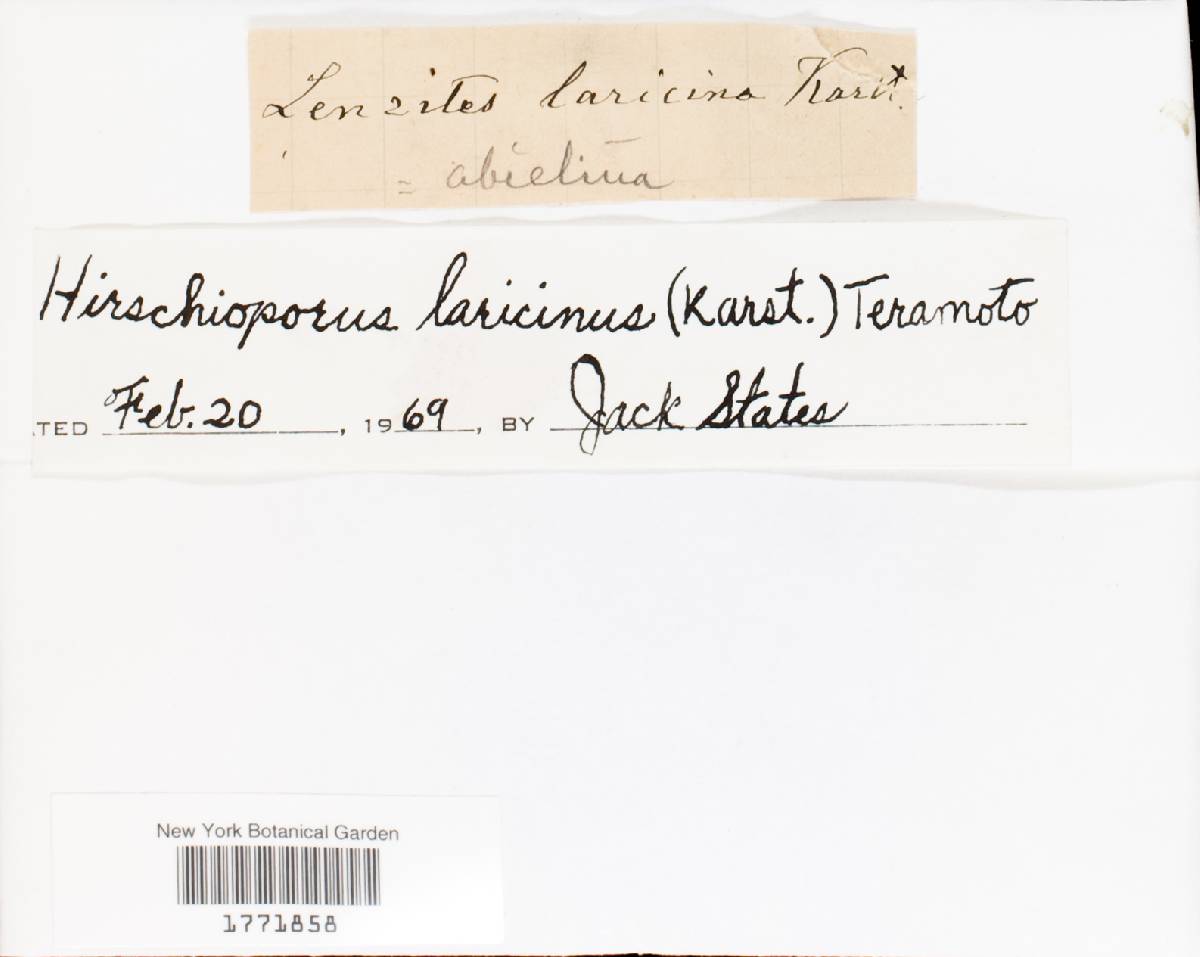 Lenzites laricina Karst.
= abietina
Hirschioporus laricinus (Karst.) Teramoto
TED Feb. 20, 1969, BY Jack States
New York Botanical Garden
1771858